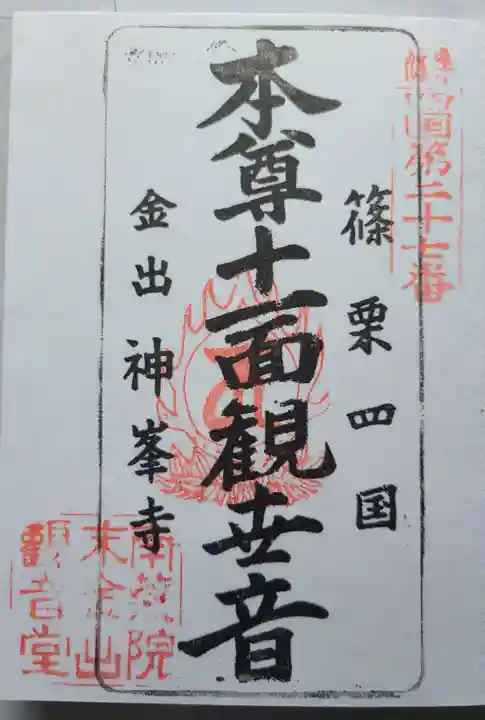 四国第二十七番
篠栗四国
本尊十一面観世音
金出神峯寺
南蔵院
末金出
観音堂